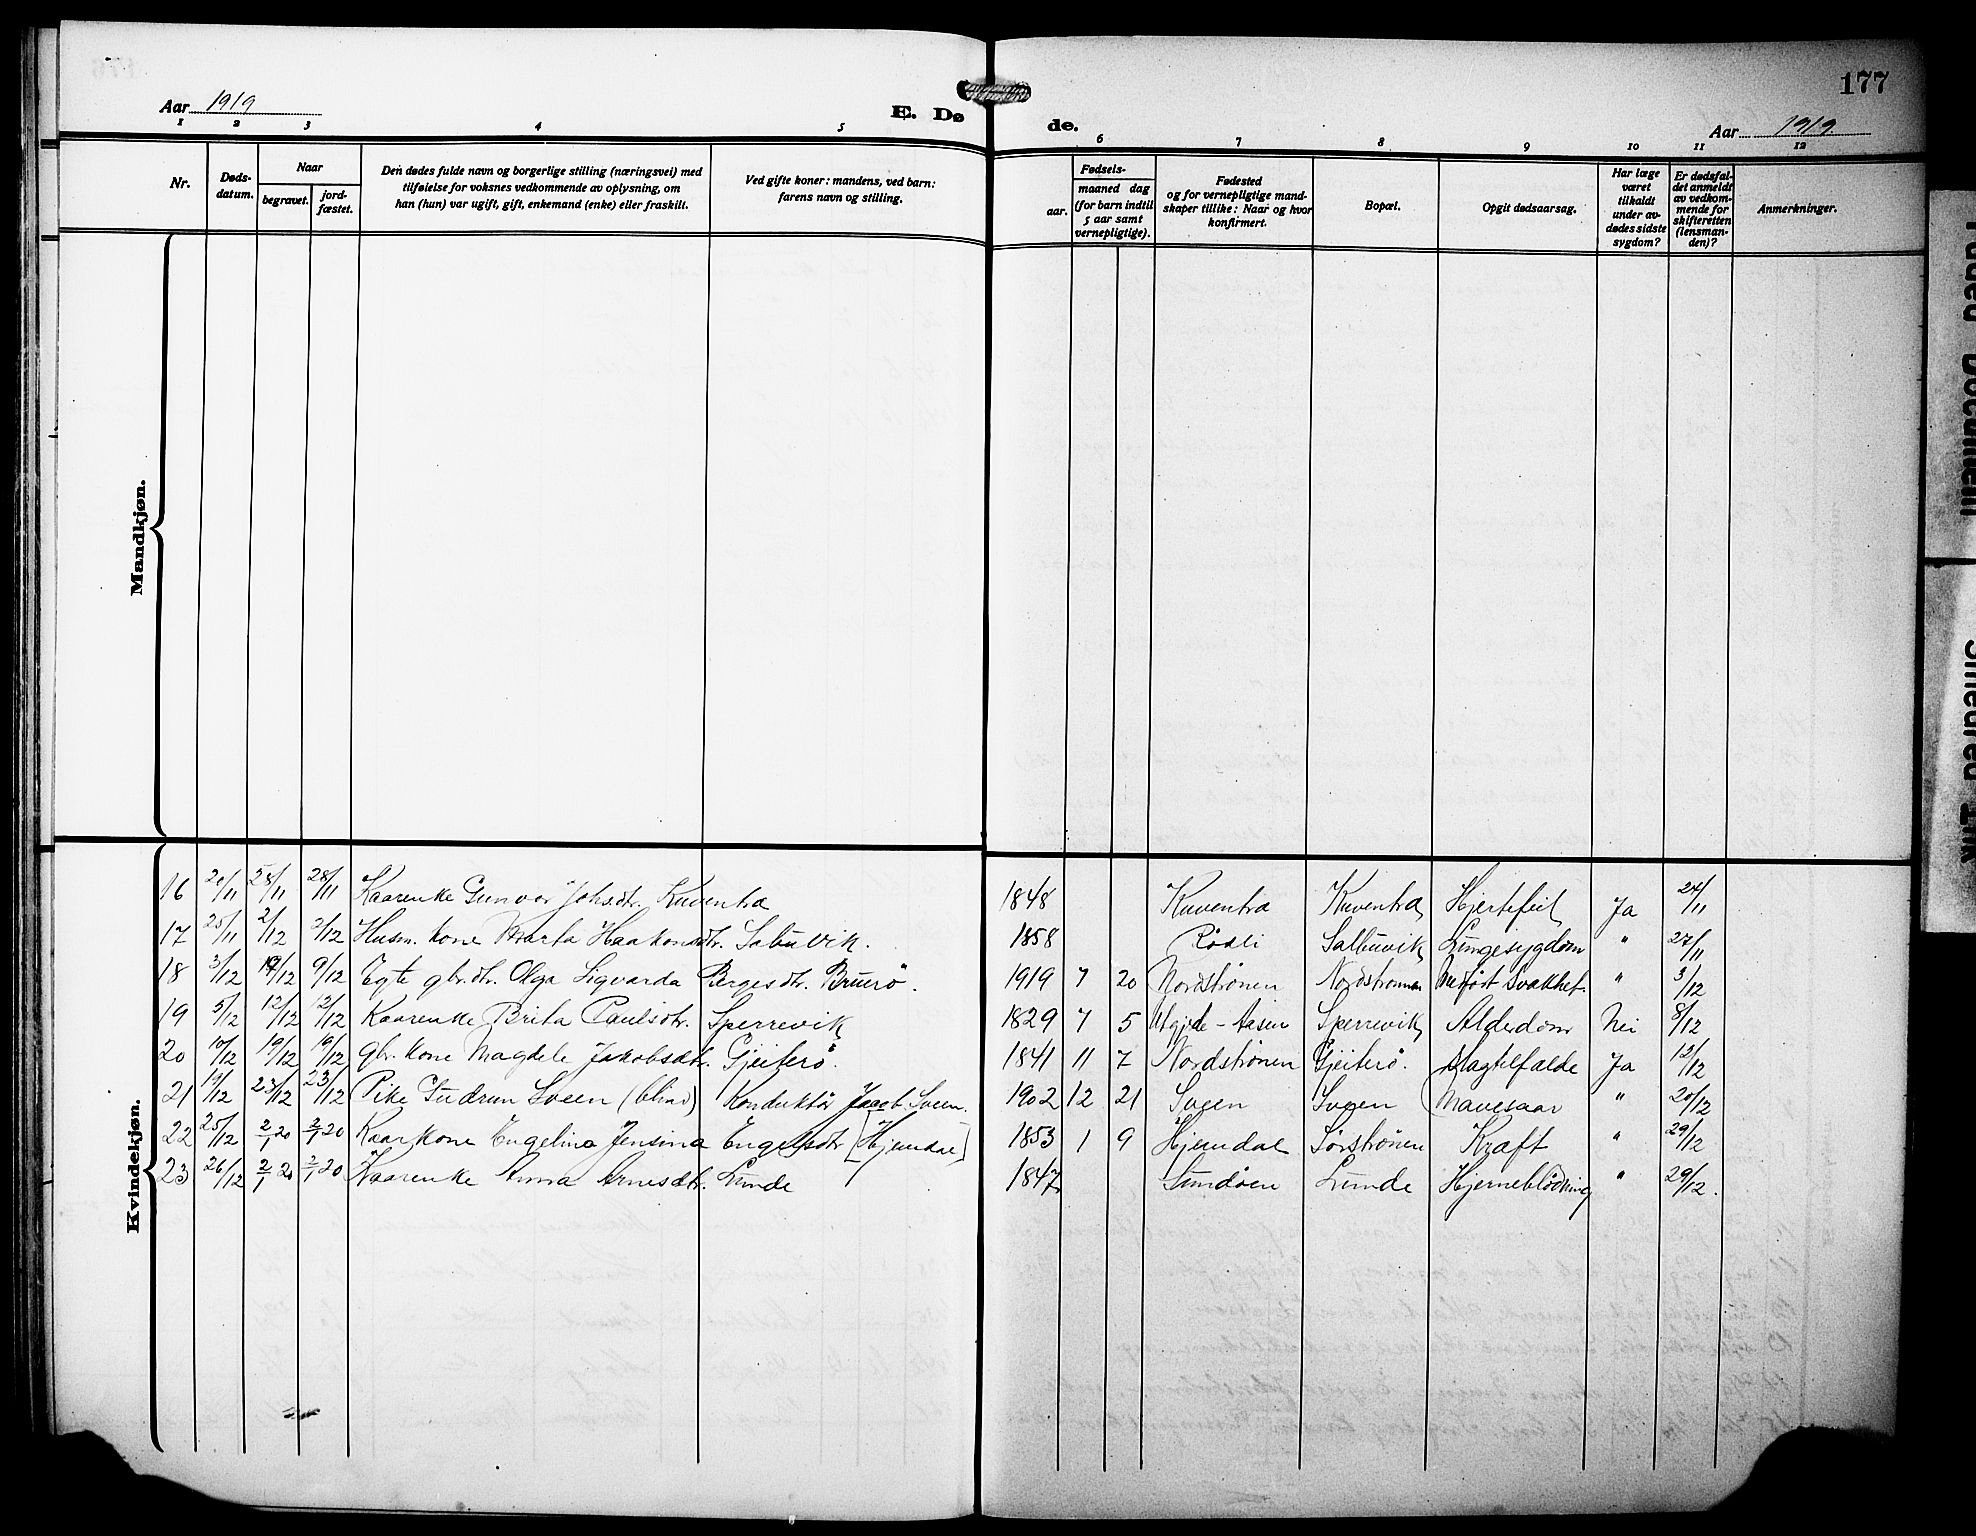 177
Aar 1919
E. Dø
de.
Aar 1919
1 2 3 4 5 6 7 8 9 10 11 12
Nr.
Døds-
datum.
Naar
begravet.
jord-
fæstet.
Den dødes fulde navn og borgerlige stilling (næringsvei) med
tilføielse for voksnes vedkommende av oplysning, om
han (hun) var ugift, gift, enkemand (enke) eller fraskilt.
Ved gifte koner: mandens, ved barn:
farens navn og stilling.
Fødsels-
aar.
maaned dag
(for barn indtil
5 aar samt
vernepligtige).
Fødested
og for vernepligtige mand-
skaper tillike: Naar og hvor
konfirmert.
Bopæl.
Opgit dødsaarsag.
Har læge
været
tilkaldt
under av-
dødes sidste
sygdom?
Er dødsfal-
det anmeldt
av vedkom-
mende for
skifteretten
(lensman-
den)?
Anmerkninger.
Mandkjøn.
Kvindekjøn.
16 20/11 28/11 28/11 Kaarenke Gunvor Johsdtr. Kuventræ 1848 Kuventræ Kuventræ Hjertefeil Ja 24/11
17 25/11 2/12 2/12 Husm. kone Marta Haakonsdtr. Salbuvik. 1858 Rödli Salbuvik Lungesygdom " 27/11
18 3/12 9/12 9/12 Egte gbr.dtr. Olga Sigvarda Bergesdtr. Bruerö. 1919 7 20 Nordströnen Nordströnen Medfört Svakhet. " 3/12
19 5/12 12/12 12/12 Kaarenke Brita Paulsdtr. Sperrevik 1829 7 5 Utgjede-Aasen Sperrevik Alderdom Nei 8/12
20 10/12 19/12 19/12 Gbr. kone Magdele Jakobsdtr. Gjeiterö. 1841 11 7 Nordströnen Gjeiterö. Magtelfælde Ja 12/12
21 19/12 23/12 23/12 Pike Gudrun Sveen (blind) Konduktör Jacob Sveen. 1902 12 21 Sveen Sveen Mavesaar " 20/12
22 25/12 2/1 20 2/1 20 Kaarkone Engelina Jensina Engelsdtr [Hjemdal] 1853 1 9 Hjemdal Sörströnen Kræft " 29/12
23 26/12 2/1 20 2/1 20 Kaarenke Anna Arnesdtr. Lunde 1847 Sundöen Lunde Hjerneblödning " 29/12.